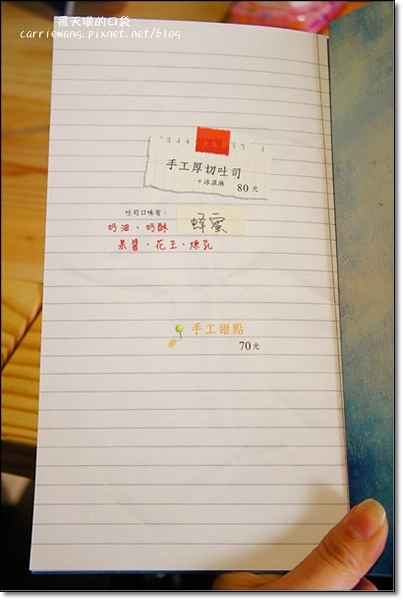 飛天璇的口袋
carriewang.pixnet.net/blog
手工厚切吐司
+冰淇淋 80元
吐司口味有：
奶油、奶酥 蜂蜜
果醬、花生、煉乳
手工甜點
70元